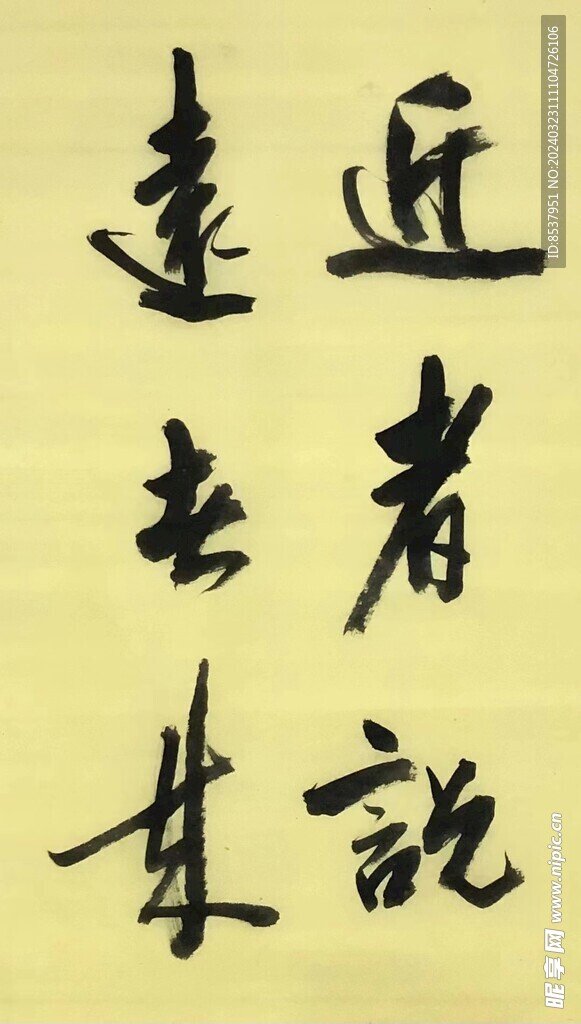 近者説
遠者来
ID:8537951 NO:20240323111104726106
昵享网 www.nipic.cn